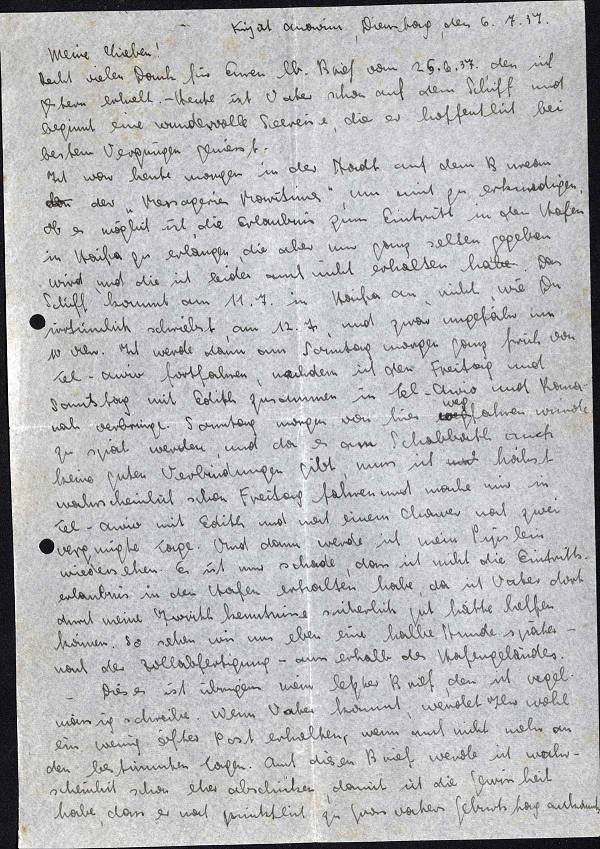 Kirjat Anavim, Dienstag, den 6. 7. 37.
Meine Lieben!
Recht vielen Dank für Euren lb. Brief vom 25.6.37. den ich
gestern erhielt. – Heute ist Vater schon auf dem Schiff und
beginnt eine wundervolle Seereise, die er hoffentlich bei
bestem Vergnügen geniesst.
Ich war heute morgen in der Stadt auf dem Bureau
der „Messageries Maritimes", um mich zu erkundigen,
ob es möglich ist, die Erlaubnis zum Eintritt in den Hafen
in Haifa zu erlangen, die aber nur ganz selten gegeben
wird und die ich leider auch nicht erhalten habe. Das
Schiff kommt am 11.7. in Haifa an, nicht, wie Du
irrtümlich schreibst, am 12.7, und zwar ungefähr um
10 Uhr. Ich werde dann am Sonntag morgen ganz früh von
Tel-Aviv fortfahren, nachdem ich den Freitag und
Samstag mit Edith zusammen in Tel-Aviv und Rama-
verbringe. Sonntag morgen von hier wegfahren würde
zu spät werden, und da es am Schabbath auch
keine guten Verbindungen gibt, muss ich höchst
wahrscheinlich schon Freitag fahren und mache mir in
Tel-Aviv mit Edith und noch einem Chawer noch zwei
vergnügte Tage. Und dann werde ich mein
wiedersehen. Es ist nur schade, dass ich nicht die Eintritts-
erlaubnis in den Hafen erhalten habe, da ich Vater dort
durch meine Iwrithkenntnisse sicherlich gut hätte helfen
können. So sehen wir uns eben eine halbe Stunde später –
nach der Zollabfertigung – ausserhalb des Hafengeländes.
– Dies er ist übrigens mein letzter Brief, den ich regel-
mässig schreibe. Wenn Vater kommt, werdet Ihr wohl
ein wenig öfter Post erhalten, wenn auch nicht mehr an
den bestimmten Tagen. Auch diesen Brief werde ich wahr-
scheinlich schon eher abschicken, damit ich die Gewissheit
habe, dass er noch pünktlich zu Grossvaters Geburtstag ankommt